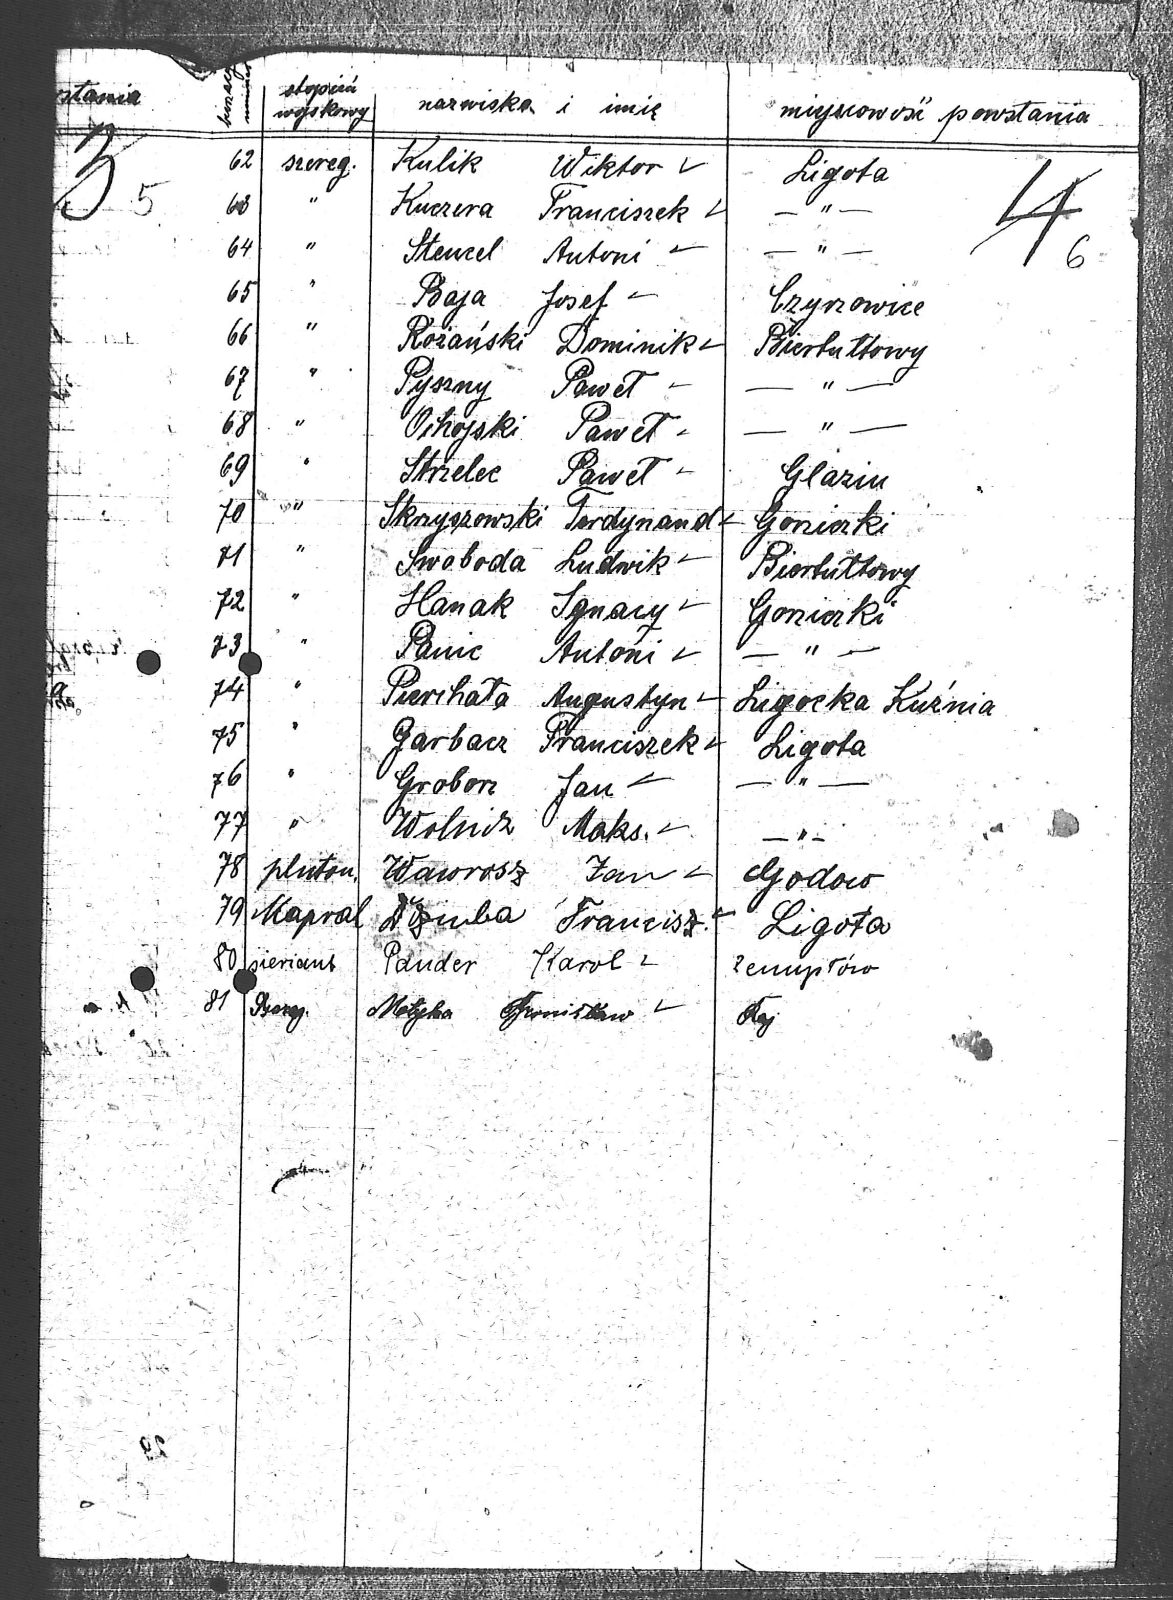 stania
stopień
wojskowy nazwiska i imię miejscowość powstania
3 5
4 6
62 szereg. Kulik Wiktor Ligota
63 " Kuczera Franciszek — " —
64 " Stencel Antoni — " —
65 " Baja Josef Czyrzowice
66 " Rożański Dominik Biertułtowy
67 " Pyszny Paweł — " —
68 " Ochojski Paweł — " —
69 " Strzelec Paweł Glazin
70 " Skrzyszowski Ferdynand Gorziczki
71 " Swoboda Ludwik Biertułtowy
72 " Hanak Ignacy Gorziczki
73 " Panic Antoni — " —
74 " Pierchała Augustyn Ligocka Kuźnia
75 " Garbacz Franciszek Ligota
76 " Groborz Jan — " —
77 " Wolnik Maks. — " —
78 pluton. Wawrosz Jan Godow
79 Kapral Dziuba Francisz. Ligota
80 sieriant Pander Karol
81 Motyka